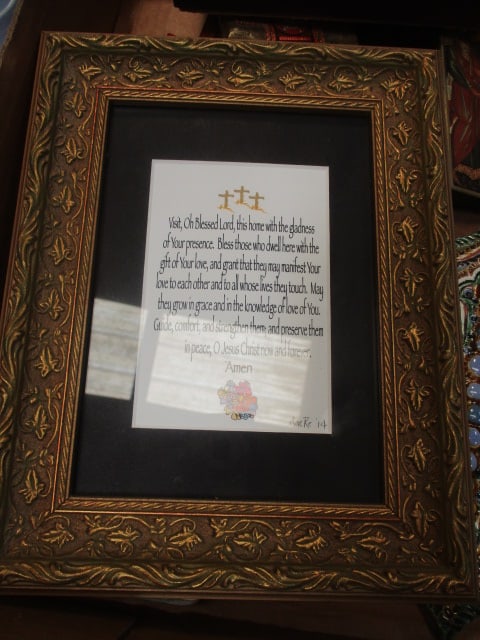 Visit, Oh Blessed Lord, this home with the gladness
of Your presence. Bless those who dwell here with the
gift of Your love, and grant that they may manifest Your
love to each other and to all whose lives they touch. May
they grow in grace and in the knowledge of love of You.
Guide, comfort, and strengthen them and preserve them
in peace, O Jesus Christ now and forever.
Amen
'14